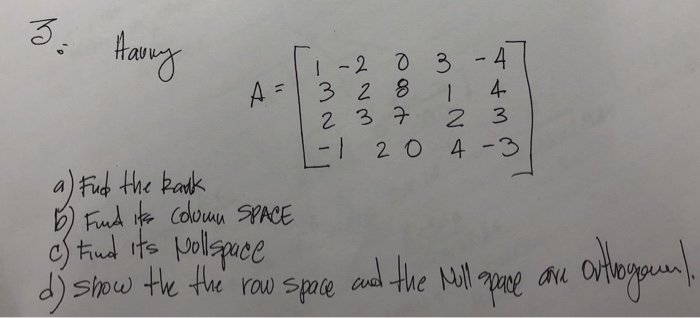 3. Having
A = [1 -2 0 3 -4
3 2 8 1 4
2 3 7 2 3
-1 2 0 4 -3]
a) Find the Rank
b) Find its Column SPACE
c) Find its Nullspace
d) show the the row space and the Null space are orthogonal.